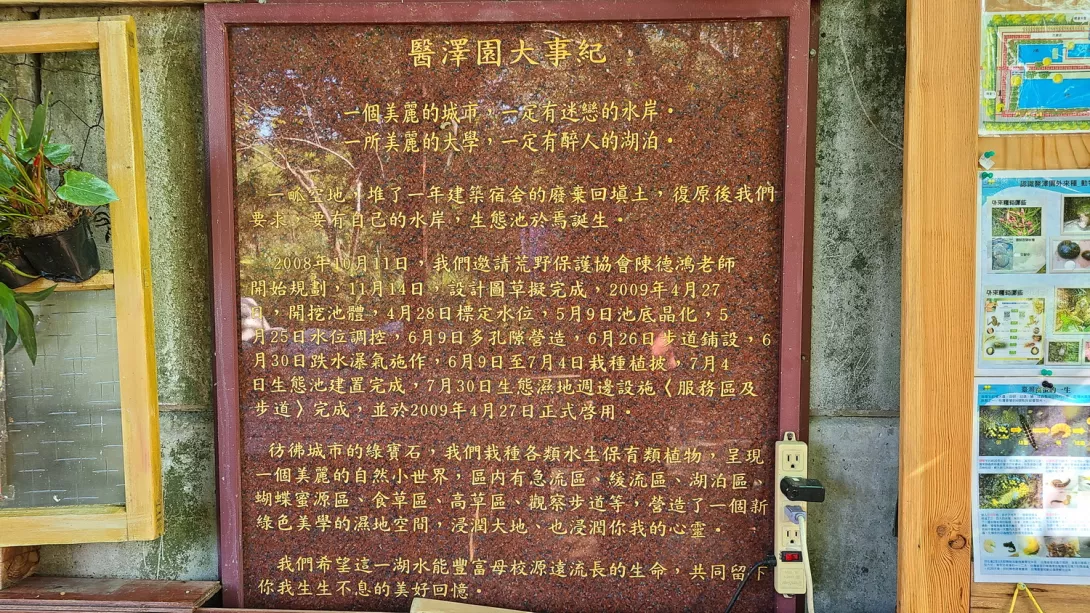 醫澤園大事紀
一個美麗的城市，一定有迷戀的水岸。
一所美麗的大學，一定有醉人的湖泊。
一畈空地，堆了一年建築宿舍的廢棄回填土，復原後我們
要求，要有自己的水岸，生態池於焉誕生。
2008年10月11日，我們邀請荒野保護協會陳德鴻老師
開始規劃，11月14日，設計圖草擬完成，2009年4月27
日，開挖池體，4月28日標定水位，5月9日池底晶化，5
月25日水位調控，6月9日多孔隙營造，6月26日步道鋪設，6
月30日跌水瀑氣施作，6月9日至7月4日栽種植披，7月4
日生態池建置完成，7月30日生態濕地週邊設施〈服務區及
步道〉完成，並於2009年4月27日正式啓用。
彷彿城市的綠寶石，我們栽種各類水生保育類植物，呈現
一個美麗的自然小世界，區內有急流區、緩流區、湖泊區、
蝴蝶蜜源區、食草區、高草區、觀察步道等，營造了一個新
綠色美學的濕地空間，浸潤大地，也浸潤你我的心靈
我們希望這一湖水能豐富母校源遠流長的生命，共同留下
你我生生不息的美好回憶。
外來種知識區
外來種知識區